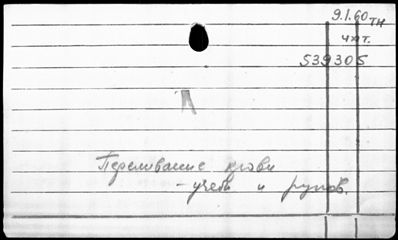 9.1.60 тн
чит.
539305
Переливание крови
-учеб и руков.